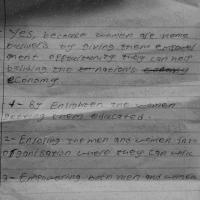 Yes, because women are home
business by giving them empower
ment opportunity they can help
building the nations
economy
1- By Enlighten the women
getting them educated.
2- Enrolling the men and women in
organisation where they can
3- Empowering both men and women